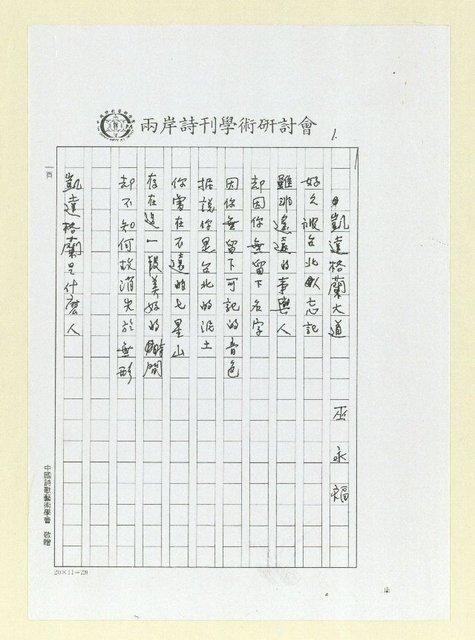 兩岸詩刊學術研討會
1.
凱達格蘭大道 巫永福
好久被台北人忘記
雖非遙遠的事與人
却因你無留下名字
因你無留下可記的音色
据說你是台北的泥土
你當在不遠的七星山
存在這一段美好的時間
却不知何故消失於無形
凱達格蘭是什麼人
頁
中國詩歌藝術學會 敬贈
20×11=220